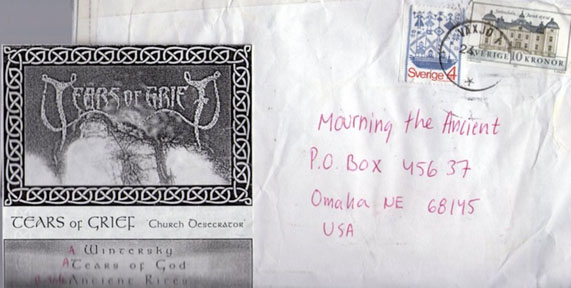 TEARS OF GRIEF
TEARS OF GRIEF Church Desecrator
A Wintersky
A Tears of God
Ancient Rites
Sverige 4
SVERIGE 10 KRONOR
VÄXJÖ
24
Mourning the Ancient
P.O. Box 456 37
Omaha NE 68145
USA